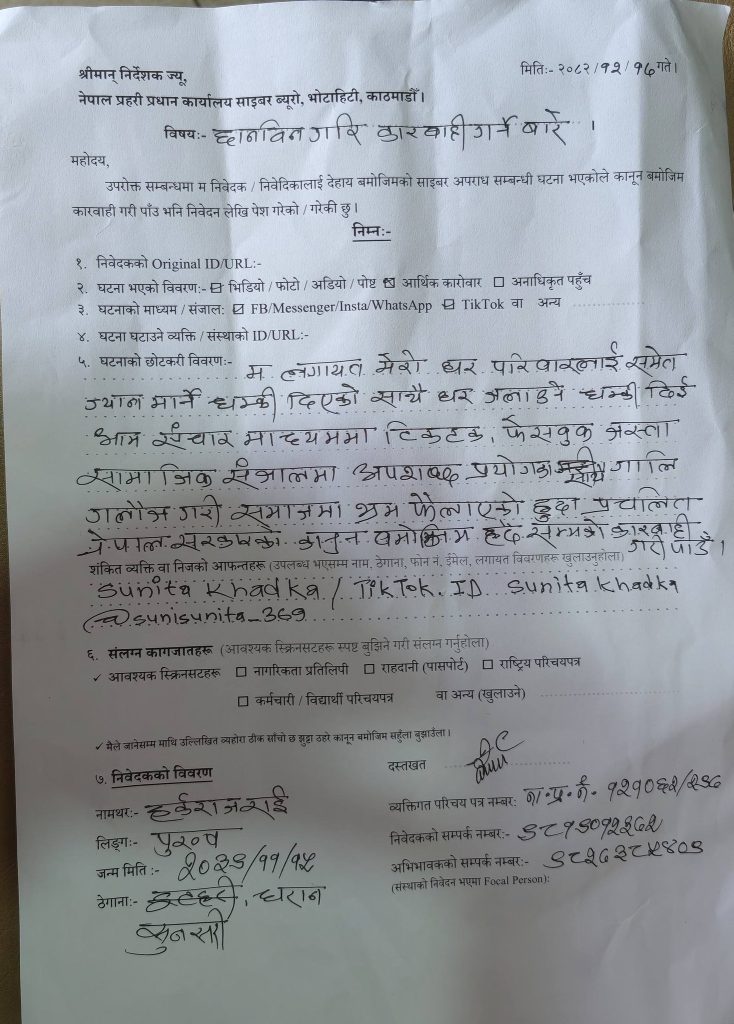 श्रीमान् निर्देशक ज्यू,
मिति:- २०८२/१२/१६ गते।
नेपाल प्रहरी प्रधान कार्यालय साइबर ब्यूरो, भोटाहिटी, काठमाडौँ।
विषय:- छानविन गरि कारवाही गर्ने बारे ।
महोदय,
उपरोक्त सम्बन्धमा म निवेदक / निवेदिकालाई देहाय बमोजिमको साइबर अपराध सम्बन्धी घटना भएकोले कानून बमोजिम
कारवाही गरी पाउँ भनि निवेदन लेखि पेश गरेको / गरेकी छु।
निम्न:-
१. निवेदकको Original ID/URL:-
२. घटना भएको विवरण:- ☑ भिडियो / फोटो / अडियो / पोष्ट ☑ आर्थिक कारोवार ☐ अनाधिकृत पहुँच
३. घटनाको माध्यम / संजाल: ☑ FB/Messenger/Insta/WhatsApp ☑ TikTok वा अन्य
४. घटना घटाउने व्यक्ति / संस्थाको ID/URL:-
५. घटनाको छोटकरी विवरण:- म लगायत मेरो घर परिवारलाई समेत
ज्यान मार्ने धम्की दिएको साथै घर जलाउने धम्की दिई
आम संचार माध्यममा टिकटक, फेसवुक जस्ता
सामाजिक संजालमा अपशब्द प्रयोगका साथै गालि
गलौज गरी समाजमा भ्रम फैलाएको हुदा प्रचलित
नेपाल सरकारको कानुन वमोजिम हदै सम्मको कारवाही
गरी पाउँ।
शंकित व्यक्ति वा निजको आफन्तहरू (उपलब्ध भएसम्म नाम, ठेगाना, फोन नं, ईमेल, लगायत विवरणहरू खुलाउनुहोला)
Sunita Khadka / TikTok. ID Sunita Khadka
@sunisunita_369
६. संलग्न कागजातहरू (आवश्यक स्क्रिनसटहरू स्पष्ट बुझिने गरी संलग्न गर्नुहोला)
✓ आवश्यक स्क्रिनसटहरू ☐ नागरिकता प्रतिलिपी ☐ राहदानी (पासपोर्ट) ☐ राष्ट्रिय परिचयपत्र
☐ कर्मचारी / विद्यार्थी परिचयपत्र वा अन्य (खुलाउने)
✓ मैले जानेसम्म माथि उल्लिखित व्यहोरा ठीक साँचो छ झुठ्ठा ठहरे कानून बमोजिम सहुँला बुझाउँला।
७. निवेदकको विवरण
दस्तखत
नामथर:- हर्कराज राई
व्यक्तिगत परिचय पत्र नम्बर: ना.प्र.नं.
लिङ्ग:- पुरुष
निवेदकको सम्पर्क नम्बर:-
जन्म मिति :- २०३९/११/१५
अभिभावकको सम्पर्क नम्बर:-
(संस्थाको निवेदन भएमा Focal Person):
ठेगाना:- इटहरी, धरान
सुनसरी